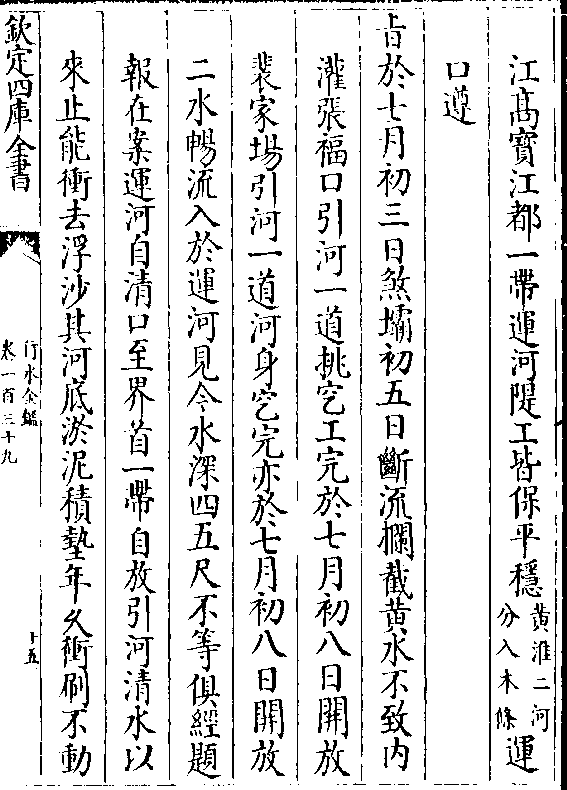 江高寳江都一帶運河隄工皆保平穩黃淮二河
分入本條運
口遵
旨於七月初三日煞壩初五日斷流攔截黃水不致内
灌張福口引河一道挑穵工完於七月初八日開放
裴家場引河一道河身穵完亦於七月初八日開放
二水暢流入於運河見今水深四五尺不等俱經題
報在案運河自清口至界首一帶自放引河清水以
來止能衝去浮沙其河底淤泥積墊年久衝刷不動
欽定四庫全書
行水金鑑
卷一百三十九
十五